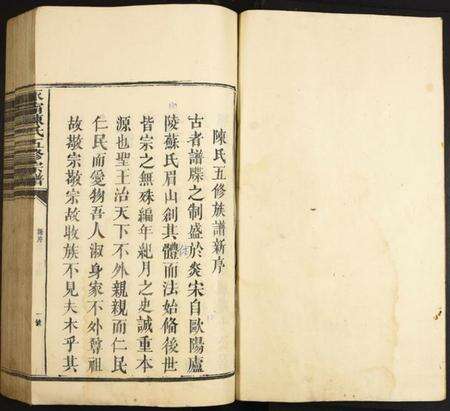 陳氏五修族譜新序
古者譜牒之制盛於炎宋自歐陽廬
陵蘇氏眉山創其體而法始備後世
皆宗之無殊編年紀月之史誠重本
源也聖王治天下不外親親而仁民
仁民而愛物吾人淑身家不外尊祖
故敬宗敬宗故收族不見夫木乎其
陳氏五修
譜
新序
一號